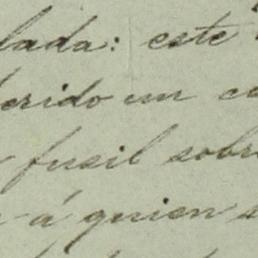 lada: este
erido un
fusil sobr
á quien s